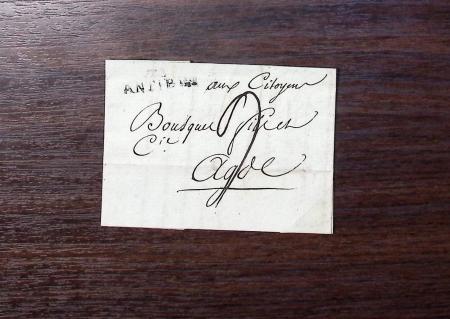 ANTIBES aux Citoyens
Bousquet fils et
Cie
Agde